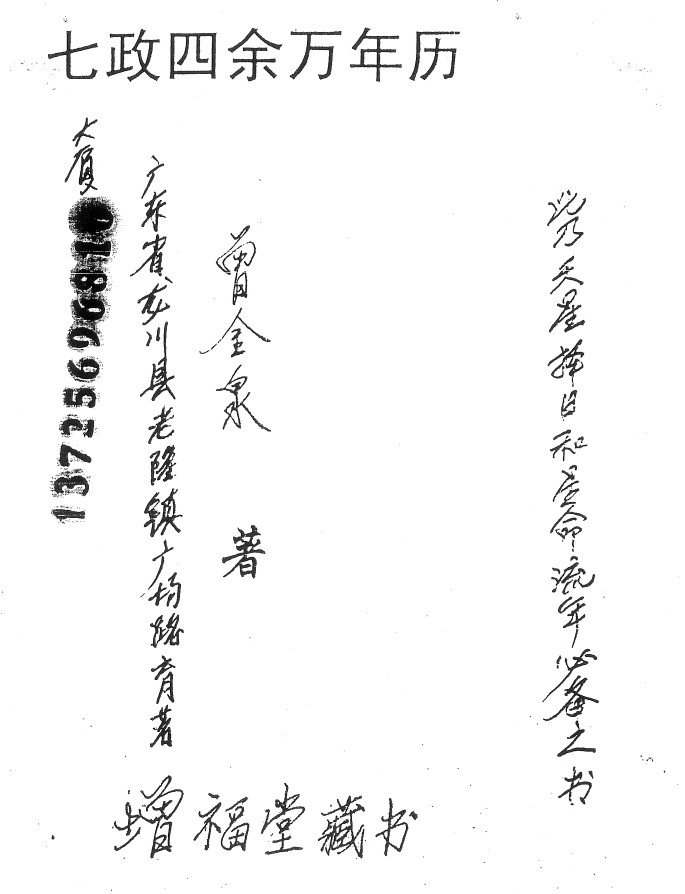 七政四余万年历
此乃天星择日和星命流年必备之书
曾金泉 著
广东省龙川县老隆镇广场路育著
大厦
13725696810
增福堂藏书